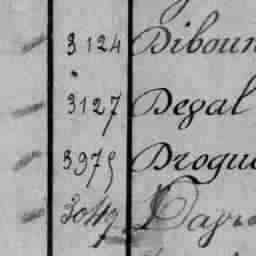 3124 Diboun
3127 Degal
3975 Drogue
3047